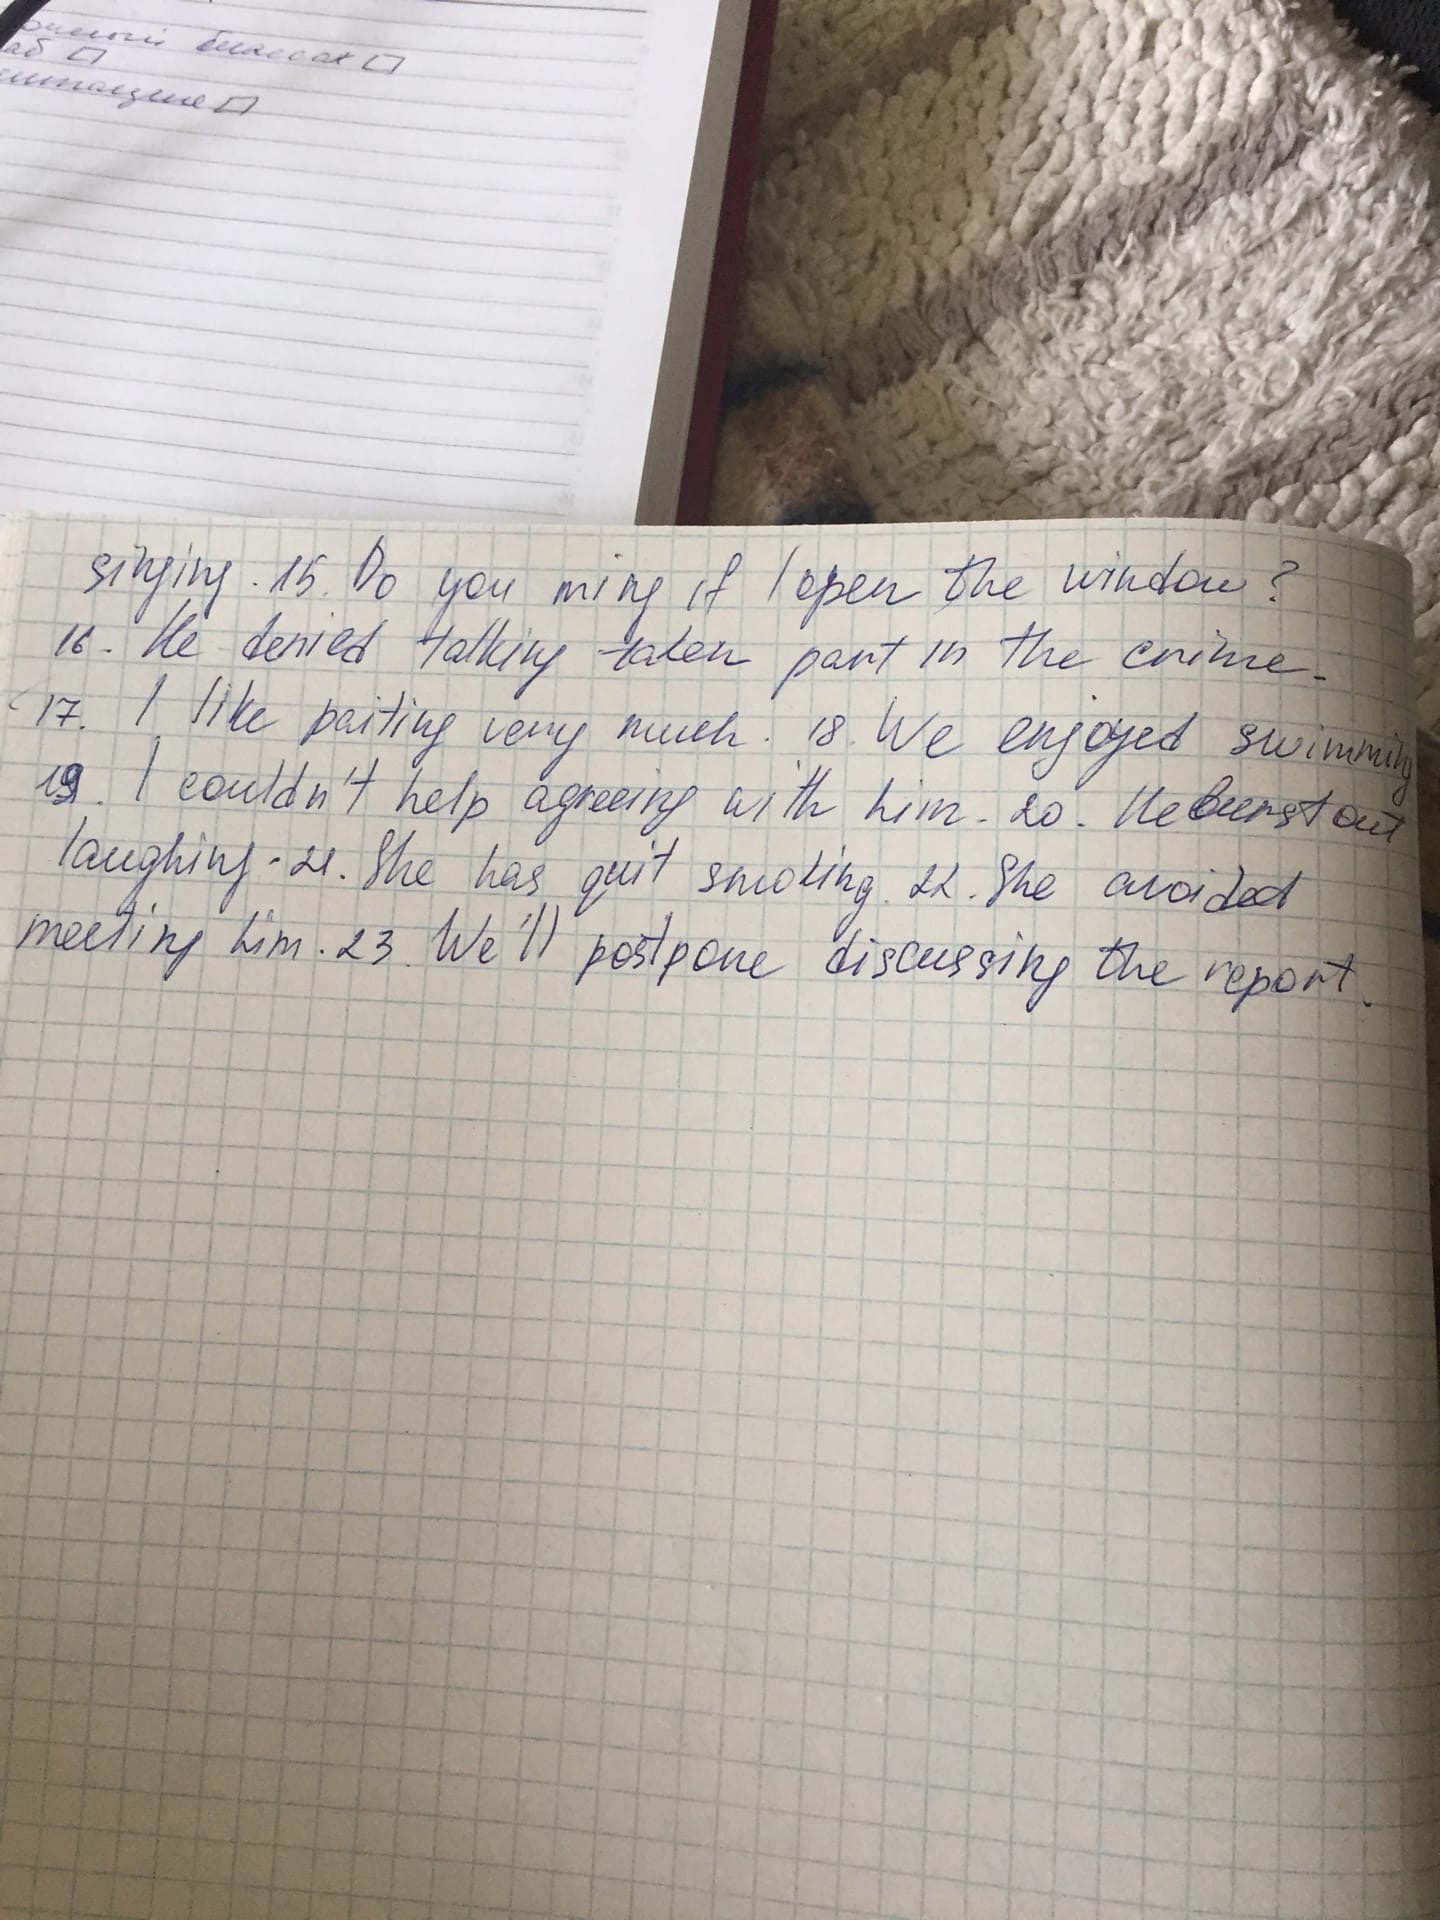 singing. 15. Do you ming if I open the window?
16. He denied talking taken part in the crime.
17. I like paiting very much. 18. We enjoyed swimming
19. I couldn't help agreeing with him. 20. He burst out
laughing. 21. She has quit smoking. 22. She avoided
meeting him. 23. We'll postpone discussing the report.